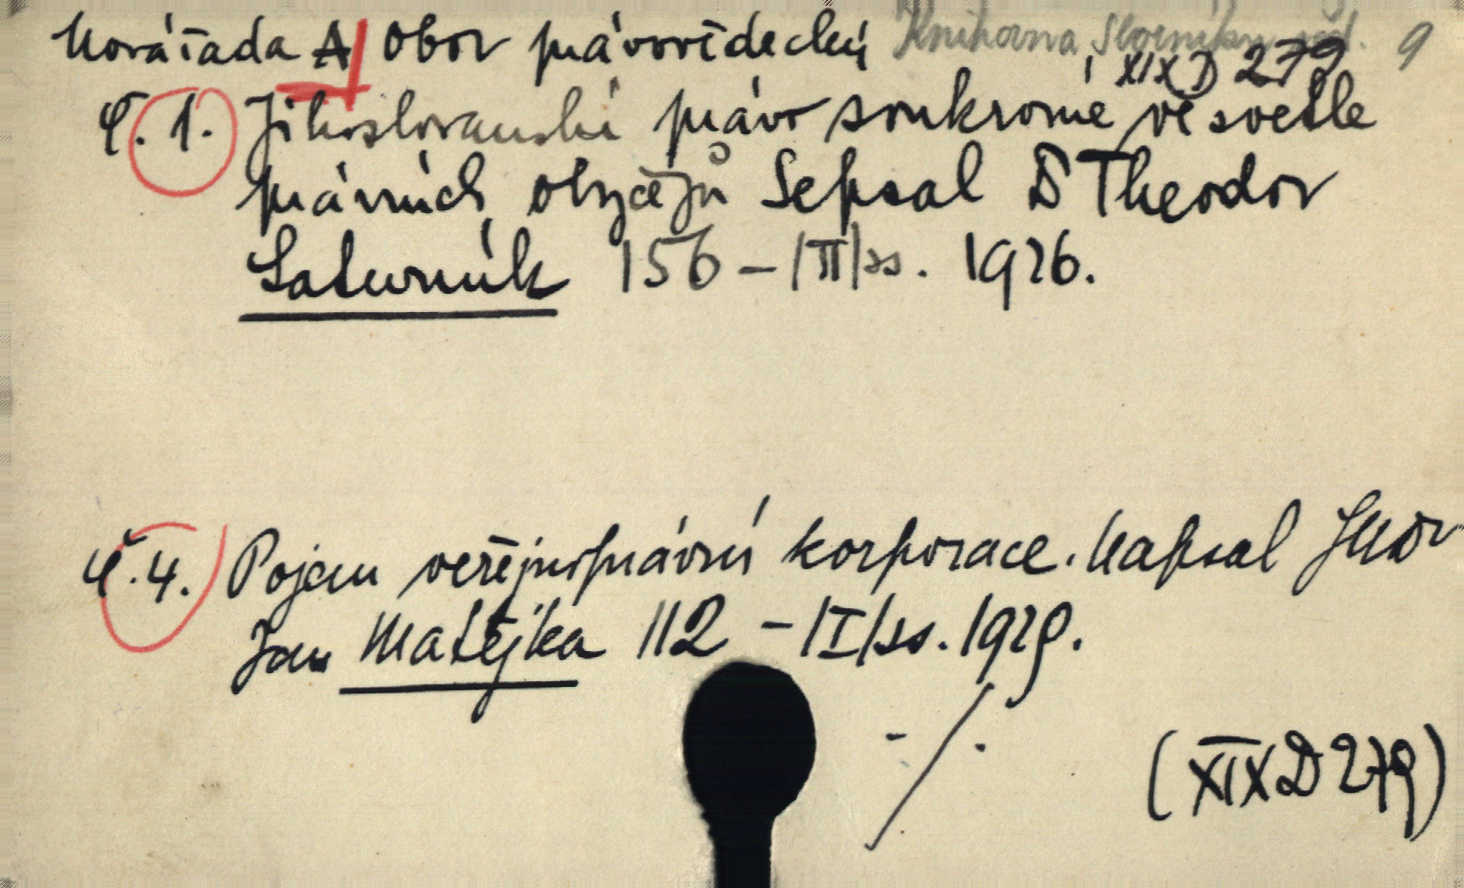 Nová řada A/ Obor právovědecký Knihovna Slovníku 9
XIX D 279
Č. 1. Jihoslovanské právo soukromé ve světle
právních obyčejů Sepsal Dr Theodor
Saturník 156 – /II/ ss. 1926.
Č. 4. Pojem veřejnoprávní korporace. Napsal JUDr
Jan Matějka 112 – /I/ ss. 1929.
-/.
(XIX D 279)